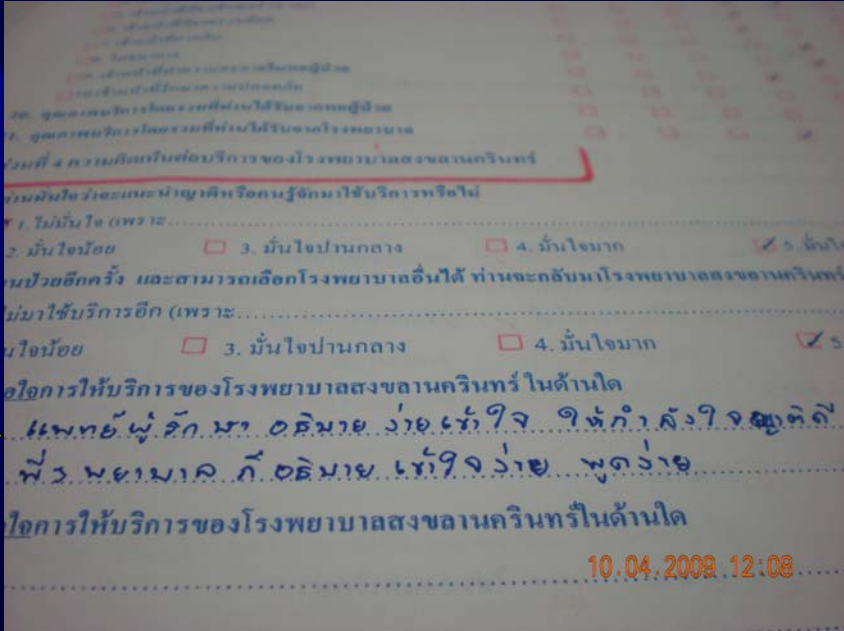 เจ้าหน้าที่ทำความสะอาดในหอผู้ป่วย
10. เจ้าหน้าที่รักษาความปลอดภัย
20. คุณภาพบริการโดยรวมที่ท่านได้รับจากหอผู้ป่วย
21. คุณภาพบริการโดยรวมที่ท่านได้รับจากโรงพยาบาล
ส่วนที่ 4 ความคิดเห็นต่อบริการของโรงพยาบาลสงขลานครินทร์
ท่านมั่นใจว่าจะแนะนำญาติหรือคนรู้จักมาใช้บริการหรือไม่
1. ไม่มั่นใจ (เพราะ
2. มั่นใจน้อย 3. มั่นใจปานกลาง 4. มั่นใจมาก 5. มั่นใ
นป่วยอีกครั้ง และสามารถเลือกโรงพยาบาลอื่นได้ ท่านจะกลับมาโรงพยาบาลสงขลานครินทร์
ไม่มาใช้บริการอีก (เพราะ
นใจน้อย 3. มั่นใจปานกลาง 4. มั่นใจมาก 5
อใจการให้บริการของโรงพยาบาลสงขลานครินทร์ ในด้านใด
แพทย์ผู้รักษา อธิบาย ง่าย เข้าใจ ให้กำลังใจญาติดี
พี่ๆ พยาบาล ก็ อธิบาย เข้าใจง่าย พูดง่าย
ใจการให้บริการของโรงพยาบาลสงขลานครินทร์ในด้านใด
10.04.2009 12:08